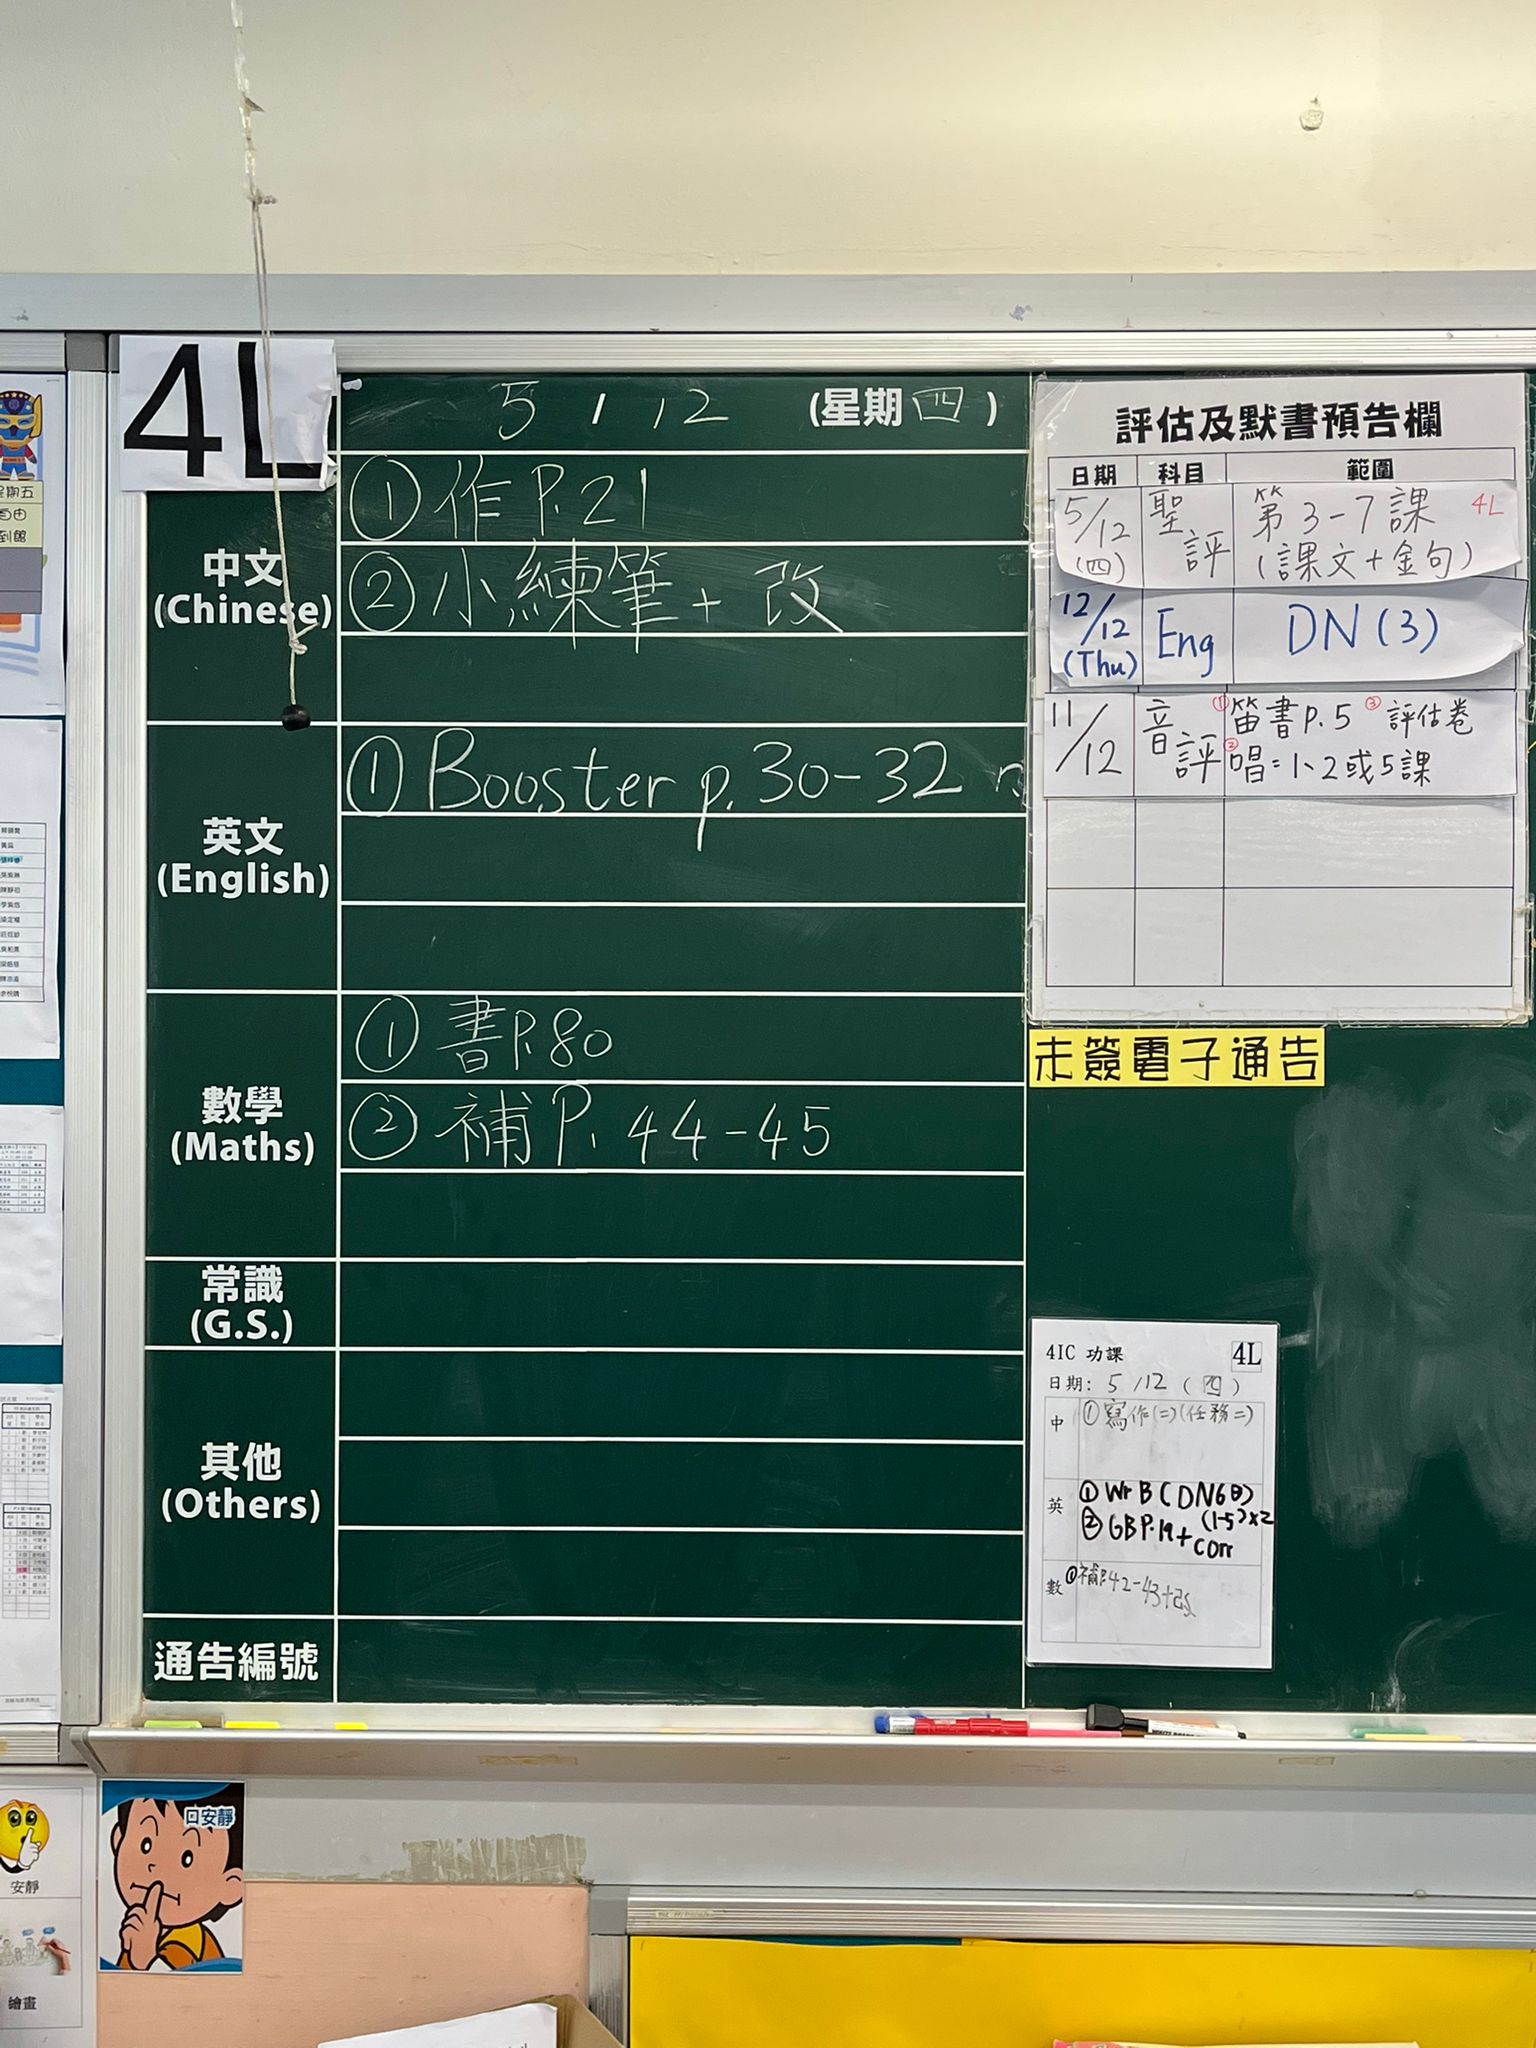 4L
5 / 12 (星期四)
中文
(Chinese)
① 作 P.21
② 小練筆 + 改
英文
(English)
① Booster p. 30-32
數學
(Maths)
① 書P.80
② 補 P. 44-45
常識
(G.S.)
其他
(Others)
通告編號
評估及默書預告欄
日期 科目 範圍
5/12 (四) 聖評 第3-7課 (課文+金句) 4L
12/12 (Thu) Eng DN (3)
11/12 音評 ①笛書P.5 ③評估卷
②唱=1、2或5課
未簽電子通告
4IC 功課 4L
日期: 5/12 (四)
中 ①寫作(二)(任務二)
英 ① Wr B (DN6日)
(1-5)x2
② GB P.19+
corr
數 ①補P.42-43+改
星期五
自由
到館
安靜
繪畫
口安靜